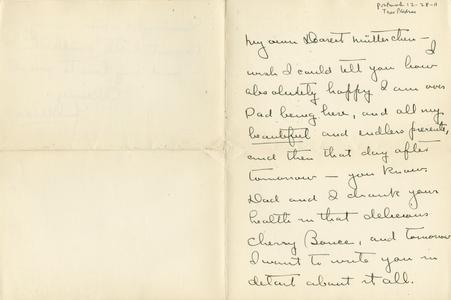 Postmark 12-28-11
My own Dearest Mütterchen –
I
wish I could tell you how
absolutely happy I am over
Dad being here, and all my
beautiful and endless presents,
and then that day after
tomorrow — you know.
Dad and I drank your
health in that delicious
Cherry Bounce, and tomorrow
I want to write you in
detail about it all.